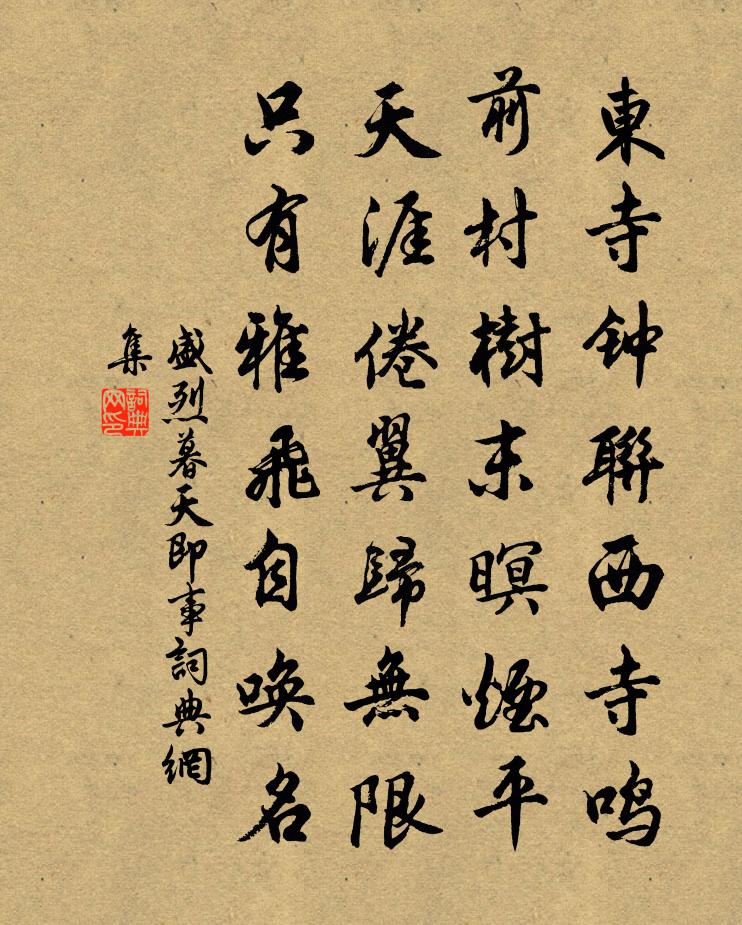 東寺钟聯西寺鸣
前村樹末暝煙平
天涯倦翼歸無限
只有雅飛自唤名
盛烈暮天即事詞典網
集
詞典網印